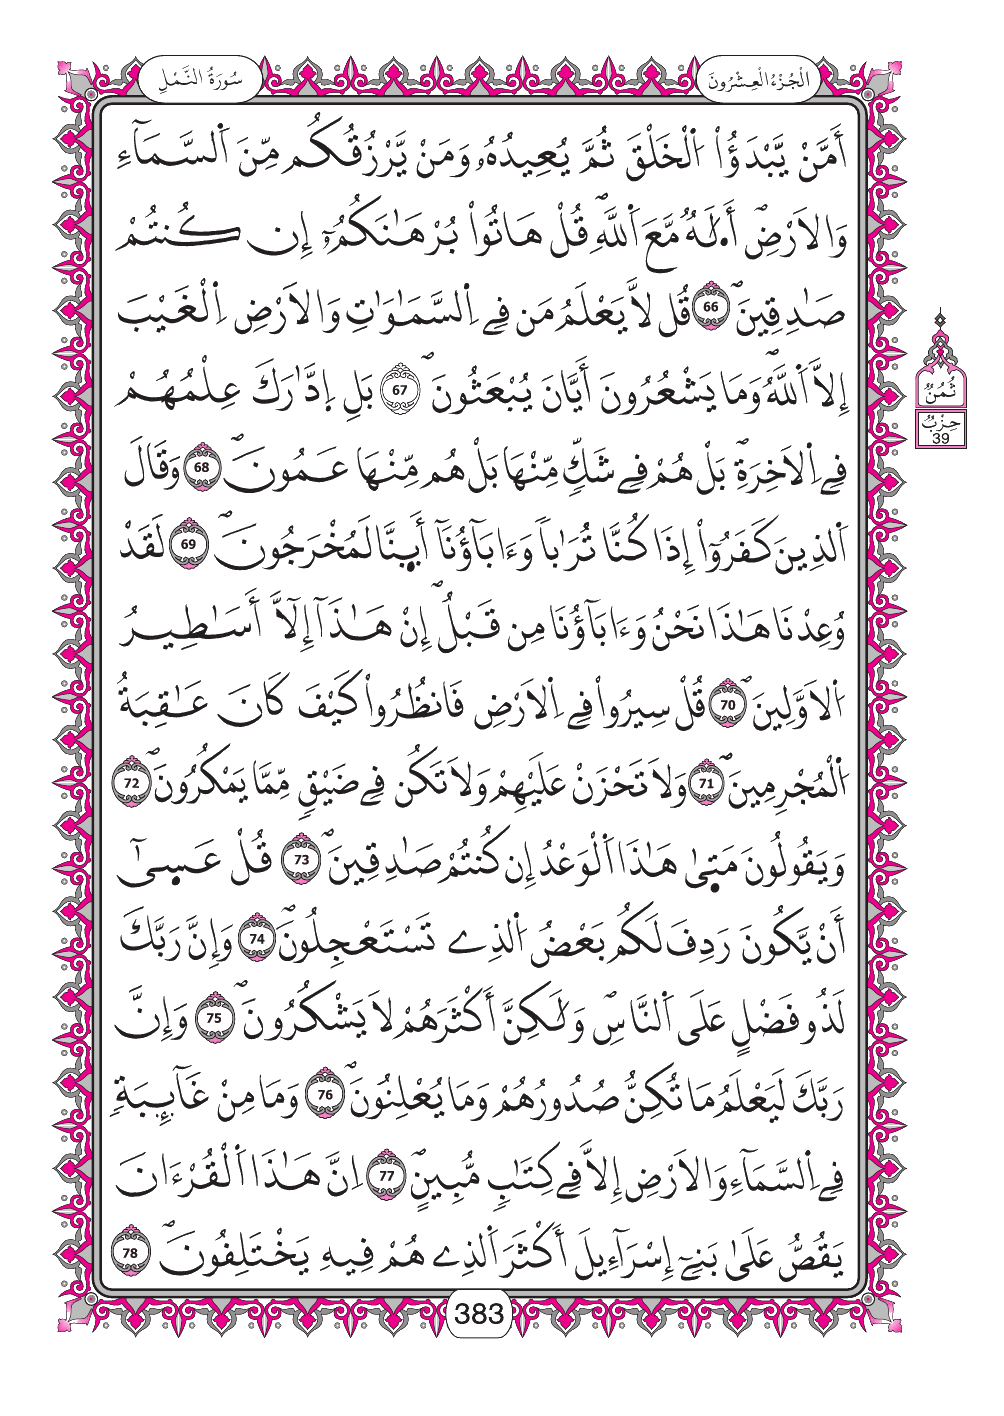 سُورَةُ النَّمْلِ
الْجُزْءُ الْعِشْرُونَ
أَمَّنْ يَّبْدَؤُاْ اُ۬لْخَلْقَ ثُمَّ يُعِيدُهُۥ وَمَنْ يَّرْزُقُكُم مِّنَ اَ۬لسَّمَآءِ
وَالَارْضِۖ أَ۟لَٰهٞ مَّعَ اَ۬للَّهِۖ قُلْ هَاتُواْ بُرْهَٰنَكُمُۥٓ إِن كُنتُمْ
صَٰدِقِينَۖ 66 قُل لَّا يَعْلَمُ مَن فِے اِ۬لسَّمَٰوَٰتِ وَالَارْضِ اِ۬لْغَيْبَ
إِلَّا اَ۬للَّهُۖ وَمَا يَشْعُرُونَ أَيَّانَ يُبْعَثُونَۖ 67 بَلِ اِ۪دَّٰرَكَ عِلْمُهُمْ
فِے اِ۬لَاخِرَةِۖ بَلْ هُمْ فِے شَكّٖ مِّنْهَا بَلْ هُم مِّنْهَا عَمُونَۖ 68 وَقَالَ
اَ۬لذِينَ كَفَرُوٓاْ إِذَا كُنَّا تُرَٰباٗ وَءَابَآؤُنَآ أَى۪نَّا لَمُخْرَجُونَۖ 69 لَقَدْ
وُعِدْنَا هَٰذَا نَحْنُ وَءَابَآؤُنَا مِن قَبْلُۖ إِنْ هَٰذَآ إِلَّآ أَسَٰطِيرُ
اُ۬لَاوَّلِينَۖ 70 قُلْ سِيرُواْ فِے اِ۬لَارْضِ فَانظُرُواْ كَيْفَ كَانَ عَٰقِبَةُ
اُ۬لْمُجْرِمِينَۖ 71 وَلَا تَحْزَنْ عَلَيْهِمْ وَلَا تَكُن فِے ضَيْقٖ مِّمَّا يَمْكُرُونَۖ 72
وَيَقُولُونَ مَت۪يٰ هَٰذَا اَ۬لْوَعْدُ إِن كُنتُمْ صَٰدِقِينَۖ 73 قُلْ عَس۪يٰٓ
أَنْ يَّكُونَ رَدِفَ لَكُم بَعْضُ اُ۬لذِے تَسْتَعْجِلُونَۖ 74 وَإِنَّ رَبَّكَ
لَذُو فَضْلٍ عَلَى اَ۬لنَّاسِۖ وَلَٰكِنَّ أَكْثَرَهُمْ لَا يَشْكُرُونَۖ 75 وَإِنَّ
رَبَّكَ لَيَعْلَمُ مَا تُكِنُّ صُدُورُهُمْ وَمَا يُعْلِنُونَۖ 76 وَمَا مِنْ غَآئِبَةٖ
فِے اِ۬لسَّمَآءِ وَالَارْضِ إِلَّا فِے كِتَٰبٖ مُّبِينٍۖ 77 اِنَّ هَٰذَا اَ۬لْقُرْءَانَ
يَقُصُّ عَلَىٰ بَنِےٓ إِسْرَآءِيلَ أَكْثَرَ اَ۬لذِے هُمْ فِيهِ يَخْتَلِفُونَۖ 78
ثُمُنُ
حِزْبُ
39
383